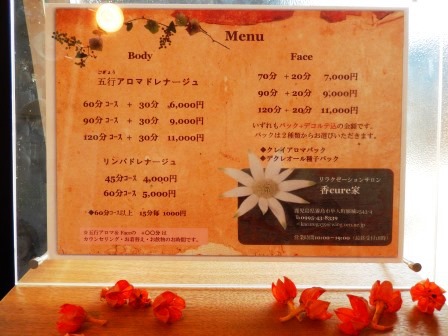 Menu
Body
ごぎょう
五行アロマドレナージュ
60分コース + 30分 6,000円
90分コース + 30分 9,000円
120分コース + 30分 11,000円
リンパドレナージュ
45分コース 4,000円
60分コース 5,000円
◆60分コース以上 15分毎 1000円
※五行アロマ& Faceの +〇〇分は
カウンセリング・お着替え・お飲物のお時間です。
Face
70分 +20分 7,000円
90分 +20分 9,000円
120分 +20分 11,000円
いずれもパック+デコルテ込の金額です。
パックは2種類からお選びいただきます。
◆クレイアロマパック
◆アクレオール種子パック
リラクゼーションサロン
香cure家
鹿児島県霧島市隼人町
0995-43-8339
営業時間10:00~19:00